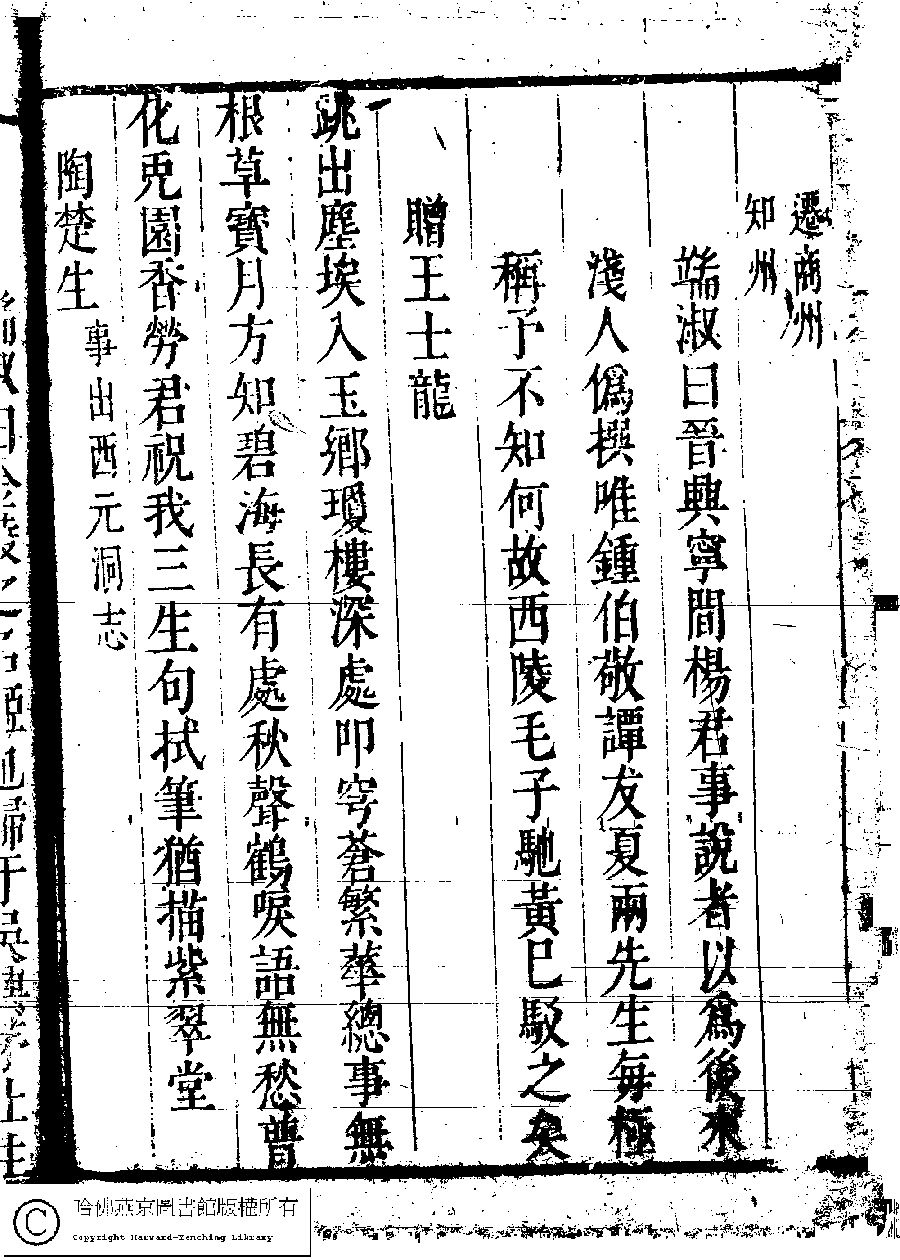 遷商州
知州
端淑曰晉興寧間楊君事說者以爲後來
淺人僞撰唯鍾伯敬譚友夏兩先生每極
稱予不知何故西陵毛子馳黃已駁之矣
贈王士龍
跳出塵埃入玉鄉瓊樓深處叩穹蒼繁華總事無
根草寶月方知碧海長有處秋聲鶴唳語無愁曾
化兎園香勞君祝我三生句拭筆猶描紫翠堂
陶楚生
事出西元洞志
哈佛燕京圖書館版權所有
Copyright Harvard-Yenching Library